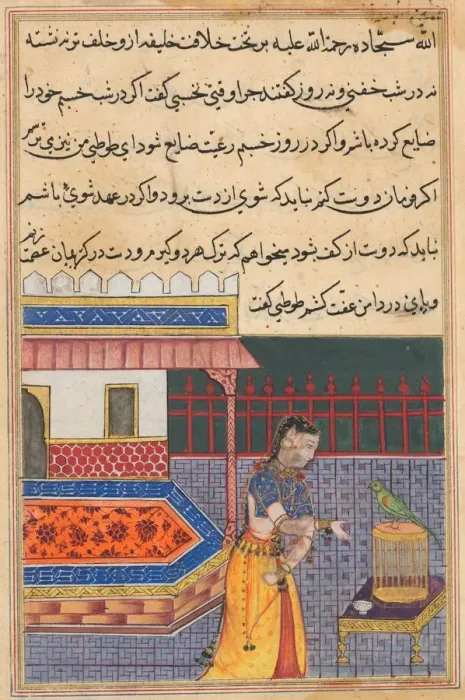 الله سجاده رحمة الله علیه بر تخت خلافت خلیفه از و خلف تر نه نشسته
نه در شب خفتی و نه روز گفتند چرا وقتی نخسبی گفت اکر در شب خسبم خود را
ضایع کرده باشم و اکر در روز خسبم رعیت ضایع شود ای طوطی من نیز می ترسم
اکر فرمان دوست کنم نباید که شوی از دست برود و اکر در عهد شوی باشم
نباید که دوست از کف شود میخواهم که ترک هر دو کیرم و دست در کریبان عفت زنم
و پای در دامن عفت کشم طوطی گفت